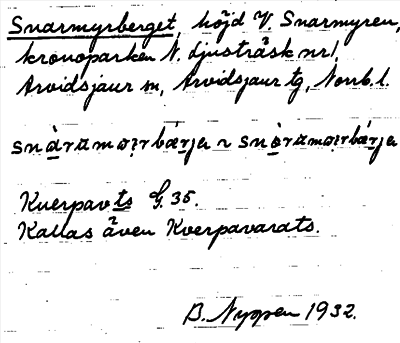 Snarmyrberget, höjd V. Snarmyren,
kronoparken N. Ljusträsk nr 1,
Arvidsjaur sn, Arvidsjaur tg, Norrb. l.
Kuerpavts G. 35.
Kallas även Kverpavarats.
B. Nyppen 1932.